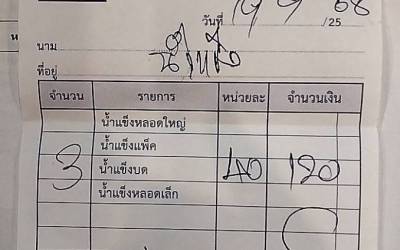 วันที่ 19 9 68 /25
นาม
ที่อยู่
จำนวน รายการ หน่วยละ จำนวนเงิน
น้ำแข็งหลอดใหญ่
น้ำแข็งแพ็ค
3 น้ำแข็งบด 40 120
น้ำแข็งหลอดเล็ก